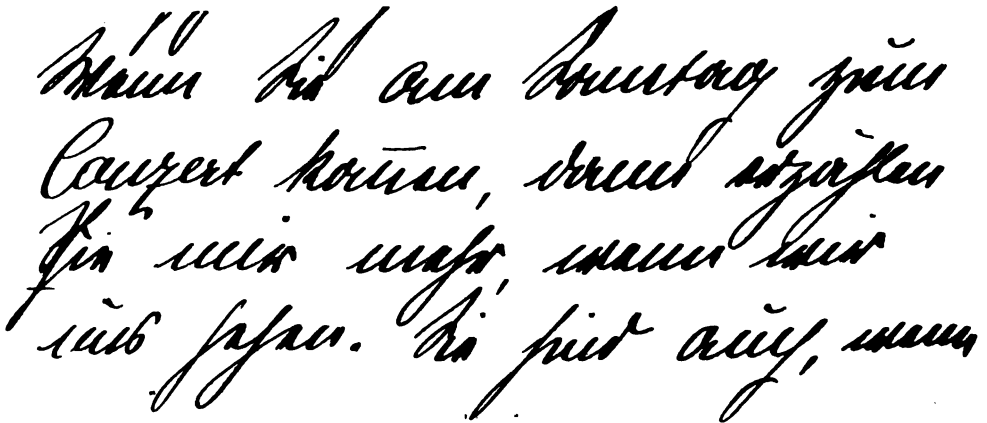 Wenn Sie am Sonntag zum
Conzert kom̅en, dann erzählen
Sie mir mehr, wenn wir
uns sehen. Sie sind auch, wenn